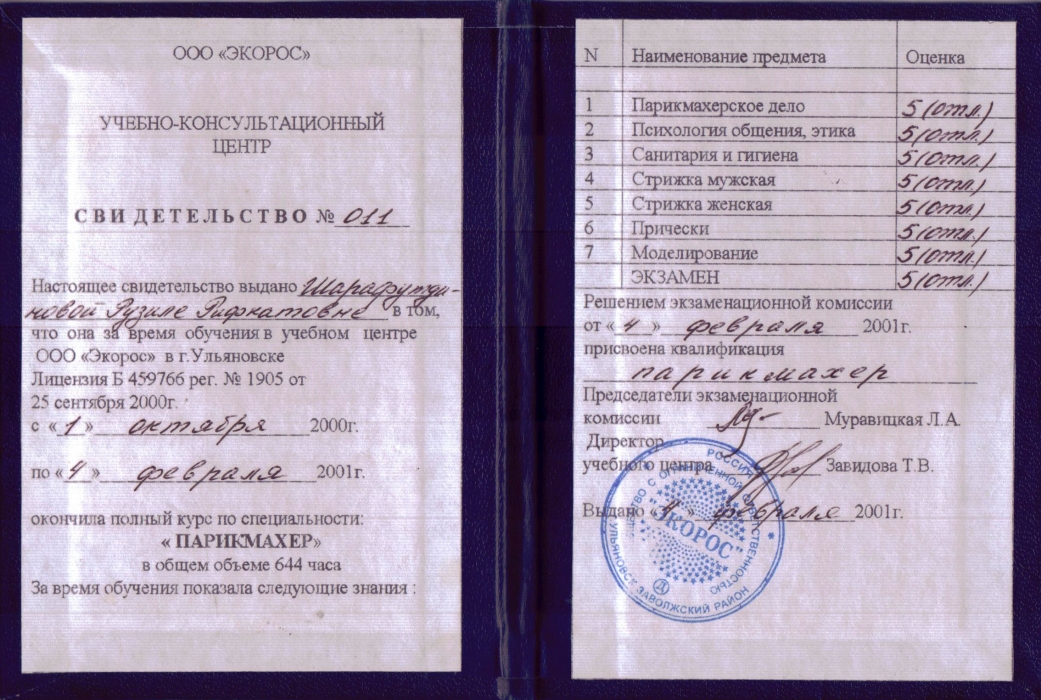 ООО «ЭКОРОС»
УЧЕБНО-КОНСУЛЬТАЦИОННЫЙ
ЦЕНТР
СВИДЕТЕЛЬСТВО № 011
Настоящее свидетельство выдано Шарафутди-
новой Рузиле Рифкатовне в том,
что она за время обучения в учебном центре
ООО «Экорос» в г.Ульяновске
Лицензия Б 459766 рег. № 1905 от
25 сентября 2000г.
с «1» октября 2000г.
по «4» февраля 2001г.
окончила полный курс по специальности:
« ПАРИКМАХЕР»
в общем объеме 644 часа
За время обучения показала следующие знания :
N Наименование предмета Оценка
1 Парикмахерское дело 5 (отл.)
2 Психология общения, этика 5 (отл.)
3 Санитария и гигиена 5 (отл.)
4 Стрижка мужская 5 (отл.)
5 Стрижка женская 5 (отл.)
6 Прически 5 (отл.)
7 Моделирование 5 (отл.)
ЭКЗАМЕН 5 (отл.)
Решением экзаменационной комиссии
от «4» февраля 2001г.
присвоена квалификация
парикмахер
Председатели экзаменационной
комиссии Муравицкая Л.А.
Директор
учебного центра Завидова Т.В.
Выдано «4» февраля 2001г.
"ЭКОРОС"
ЗАВОЛЖСКИЙ РАЙОН